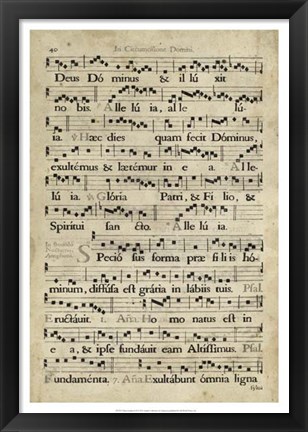 40 In Circumcisione Domini.
Deus Dó minus & il lú xit
no bis. Alle lú ia, al le lú-
ia. Hæc dies quam fecit Dóminus,
exultémus & lætémur in e a. Alle-
lú ia. Glória Patri, & Fí lio, &
Spiritui san cto. Alle lú ia.
Speció sus forma præ fi li is hó-
minum, diffúsa est grátia in lábiis tuis. Psal.
Eructávit. 1. Aña Ho mo natus est in
e a, & ipse fundávit eam Altíssimus. Psal.
Fundaménta. 7. Aña Exultábunt ómnia ligna